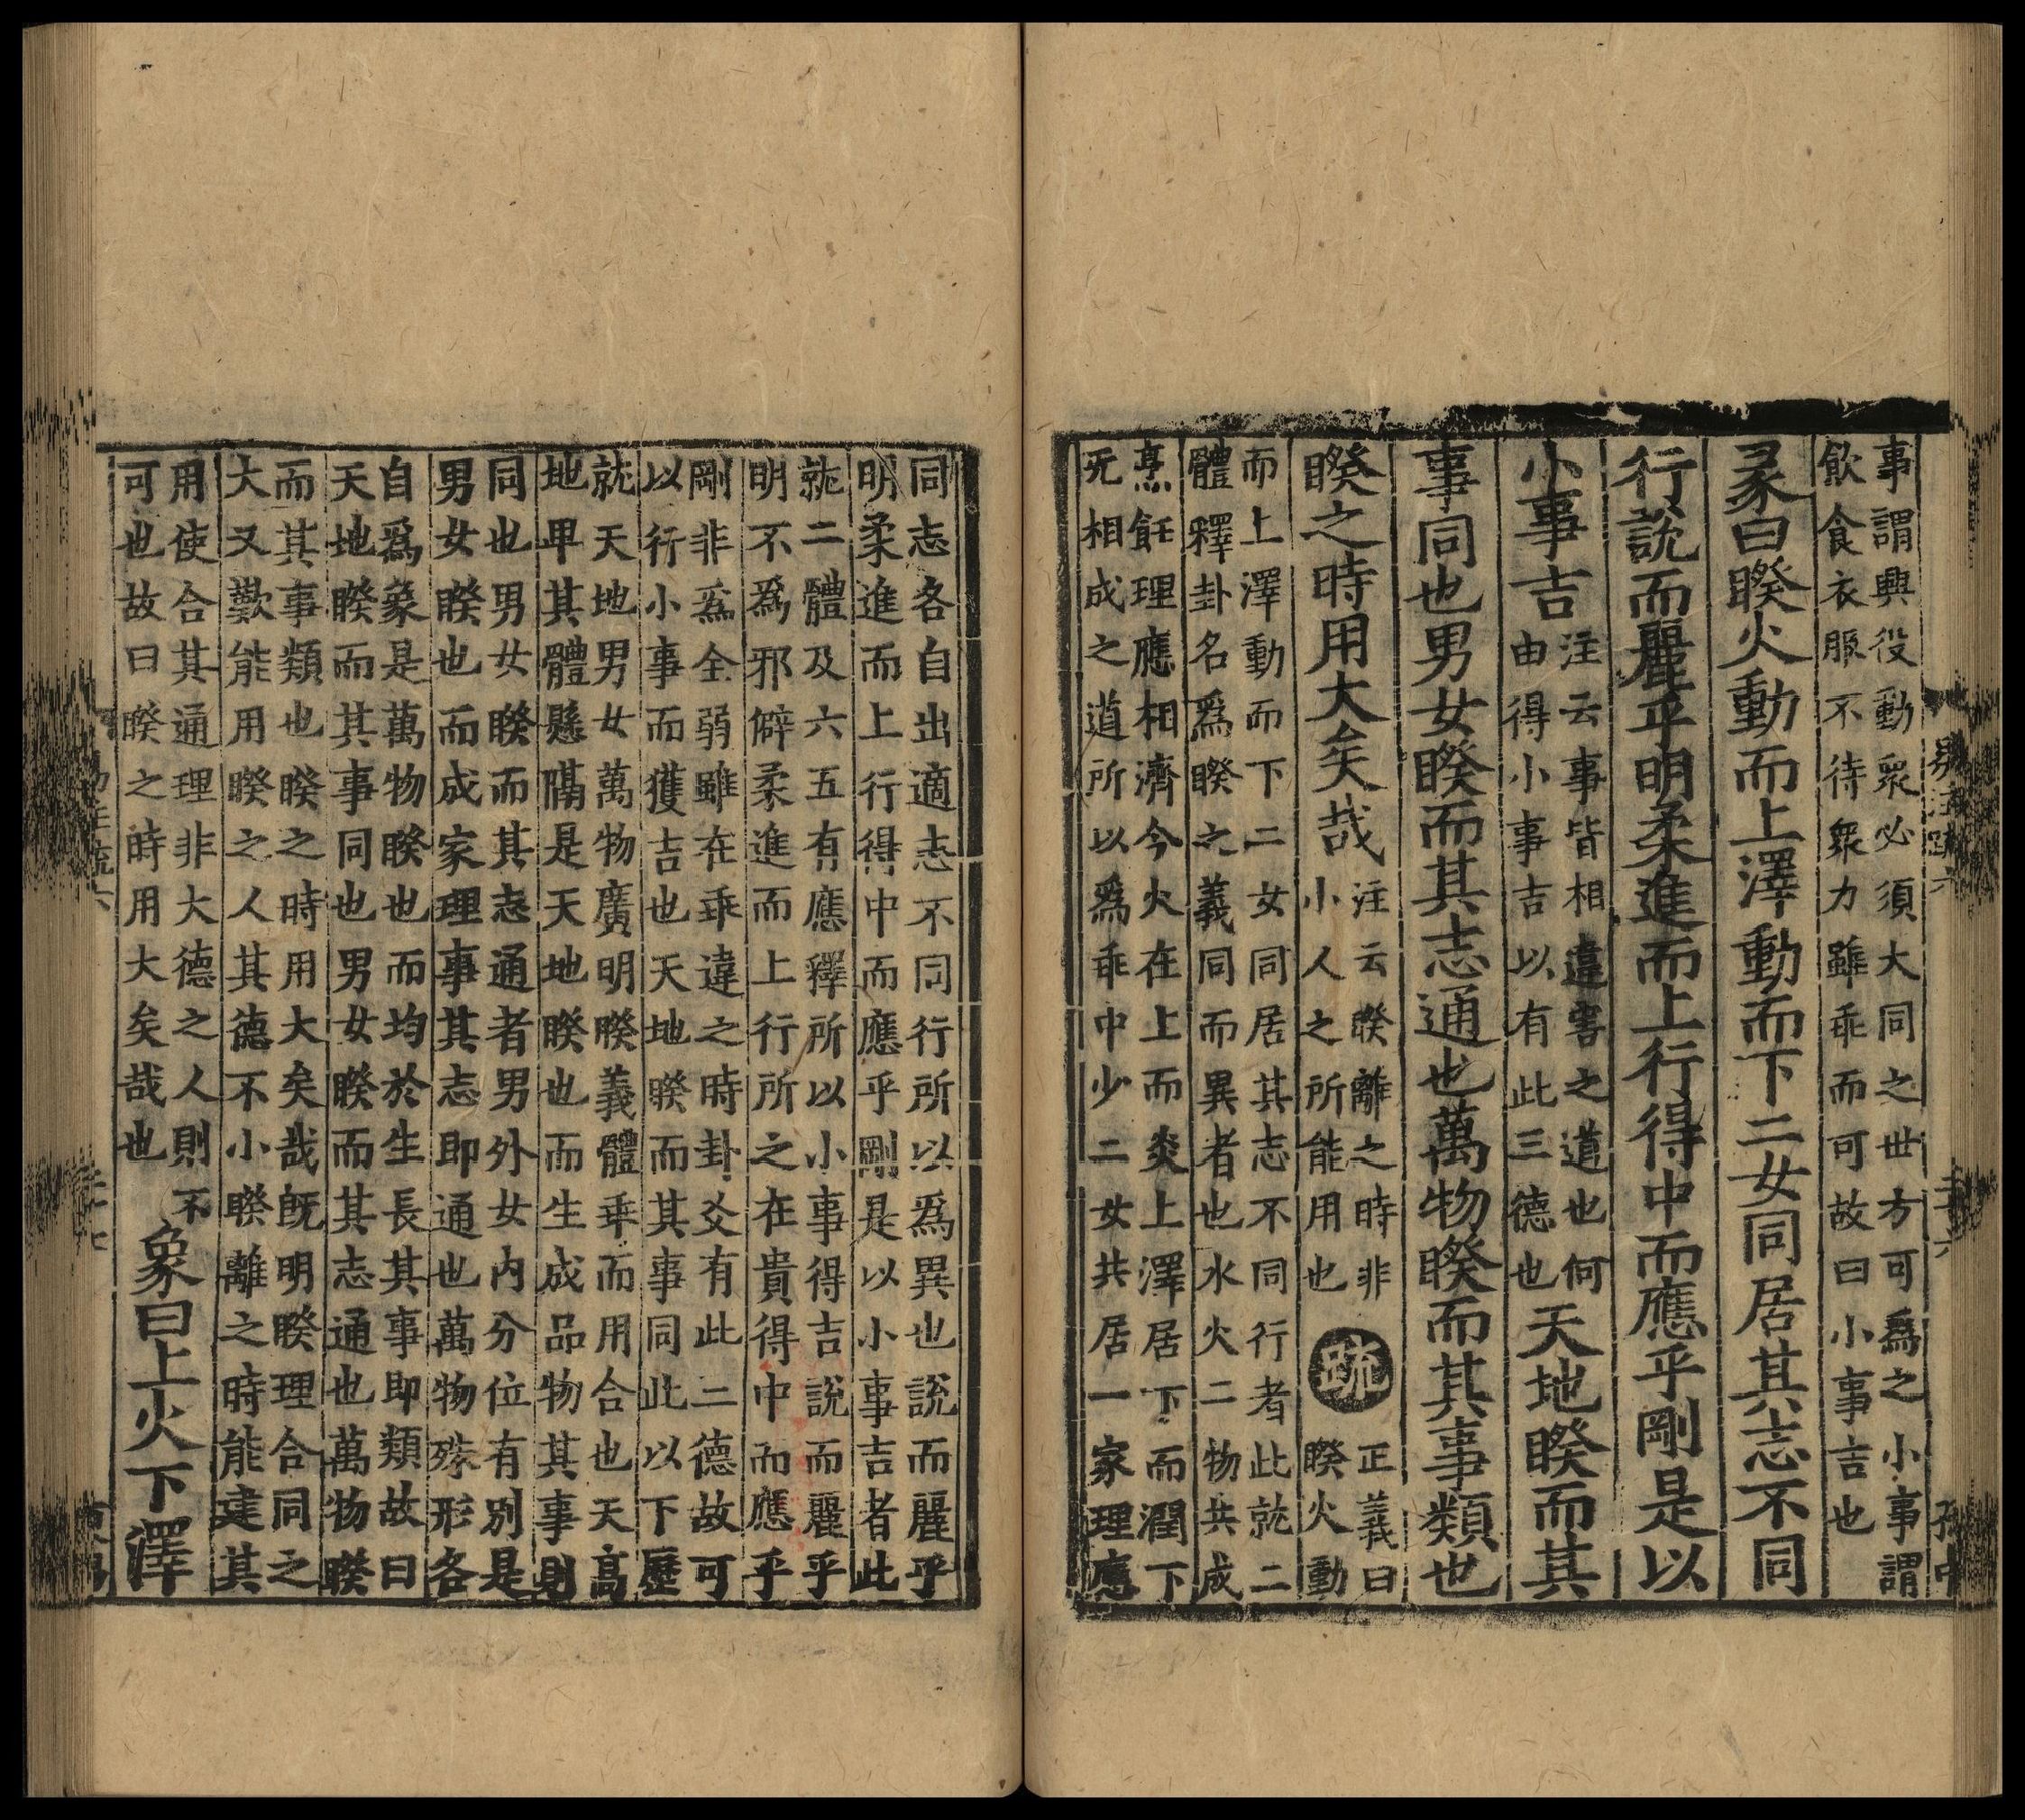 事謂興役動衆必須大同之世方可爲之小事謂
飲食衣服不待衆力雖乖而可故曰小事吉也
彖曰睽火動而上澤動而下二女同居其志不同
行說而麗乎明柔進而上行得中而應乎剛是以
小事吉
注云事皆相違害之道也何
由得小事吉以有此三德也
天地睽而其
事同也男女睽而其志通也萬物睽而其事類也
睽之時用大矣哉
注云睽離之時非
小人之所能用也
疏
正義曰
睽火動
而上澤動而下二女同居其志不同行者此就二
體釋卦名爲睽之義同而異者也水火二物共成
烹飪理應相濟今火在上而炎上澤居下而潤下
无相成之道所以爲乖中少二女共居一家理應
同志各自出適志不同行所以爲異也說而麗乎
明柔進而上行得中而應乎剛是以小事吉者此
就二體及六五有應釋所以小事得吉說而麗乎
明不爲邪僻柔進而上行所之在貴得中而應乎
剛非爲全弱雖在乖違之時卦爻有此三德故可
以行小事而獲吉也天地睽而其事同此以下歷
就天地男女萬物廣明睽義體乖而用合也天高
地卑其體懸隔是天地睽也而生成品物其事則
同也男女睽而其志通者男外女內分位有別是
男女睽也而成家理事其志即通也萬物殊形各
自爲象是萬物睽也而均於生長其事即類故曰
天地睽而其事同也男女睽而其志通也萬物睽
而其事類也睽之時用大矣哉旣明睽理合同之
大又歎能用睽之人其德不小睽離之時能建其
用使合其通理非大德之人則不
可也故曰睽之時用大矣哉也
象曰上火下澤